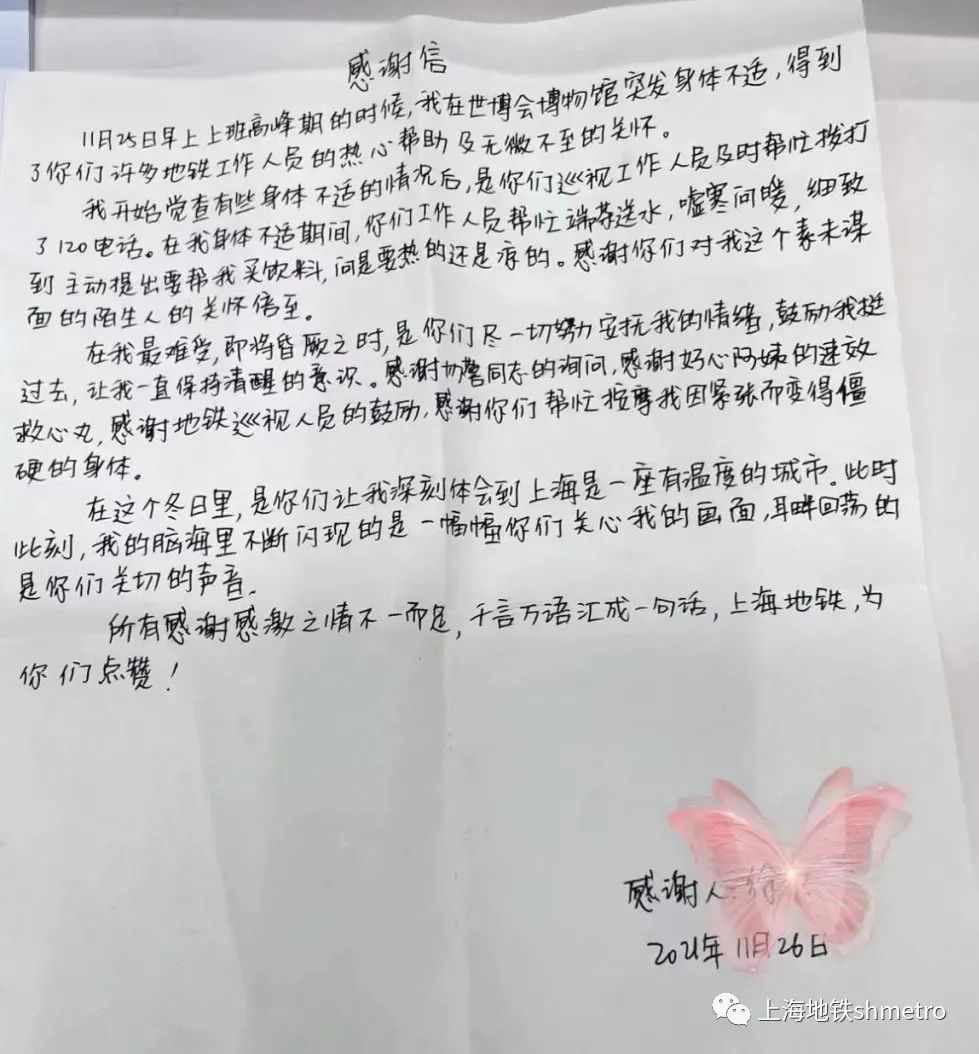 感谢信
11月25日早上上班高峰期的时候,我在世博会博物馆突发身体不适,得到
了你们许多地铁工作人员的热心帮助及无微不至的关怀。
我开始觉查有些身体不适的情况后,是你们巡视工作人员及时帮忙拨打
了120电话。在我身体不适期间,你们工作人员帮忙端茶送水,嘘寒问暖,细致
到主动提出要帮我买饮料,问是要热的还是凉的。感谢你们对我这个素未谋
面的陌生人的关怀倍至。
在我最难受,即将昏厥之时,是你们尽一切努力安抚我的情绪,鼓励我挺
过去,让我一直保持清醒的意识。感谢协警同志的询问,感谢好心阿姨的速效
救心丸,感谢地铁巡视人员的鼓励,感谢你们帮忙按摩我因紧张而变得僵
硬的身体。
在这个冬日里,是你们让我深刻体会到上海是一座有温度的城市。此时
此刻,我的脑海里不断闪现的是一幅幅你们关心我的画面,耳畔回荡的
是你们关切的声音。
所有感谢感激之情不一而足,千言万语汇成一句话,上海地铁,为
你们点赞!
感谢人:徐
2021年11月26日
上海地铁shmetro